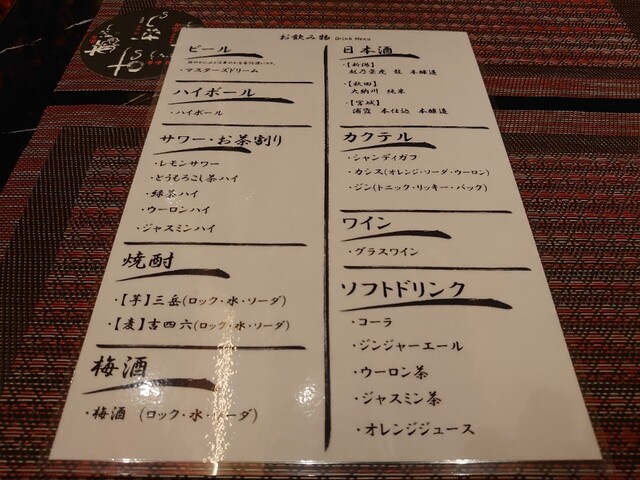 お飲み物 Drink Menu
ビール
・マスターズドリーム
ハイボール
・ハイボール
サワー・お茶割り
・レモンサワー
・とうもろこし茶ハイ
・緑茶ハイ
・ウーロンハイ
・ジャスミンハイ
焼酎
・【芋】三岳(ロック・水・ソーダ)
・【麦】吉四六(ロック・水・ソーダ)
梅酒
・梅酒 (ロック・水・ソーダ)
日本酒
・【新潟】
越乃景虎 龍 本醸造
・【秋田】
大納川 純米
・【宮城】
浦霞 本仕込 本醸造
カクテル
・シャンディガフ
・カシス(オレンジ・ソーダ・ウーロン)
・ジン(トニック・リッキー・バック)
ワイン
・グラスワイン
ソフトドリンク
・コーラ
・ジンジャーエール
・ウーロン茶
・ジャスミン茶
・オレンジジュース